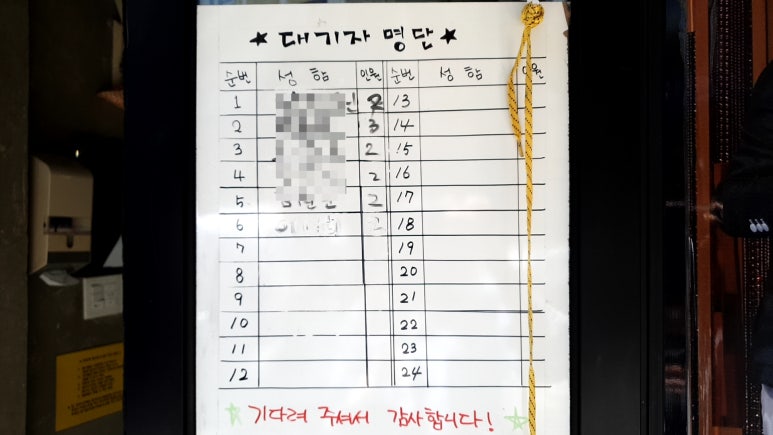 ★ 대기자 명단 ★
순번 성함 인원 순번 성함
1 2 13
2 3 14
3 2 15
4 2 16
5 2 17
6 2 18
7 19
8 20
9 21
10 22
11 23
12 24
기다려 주셔서 감사합니다!